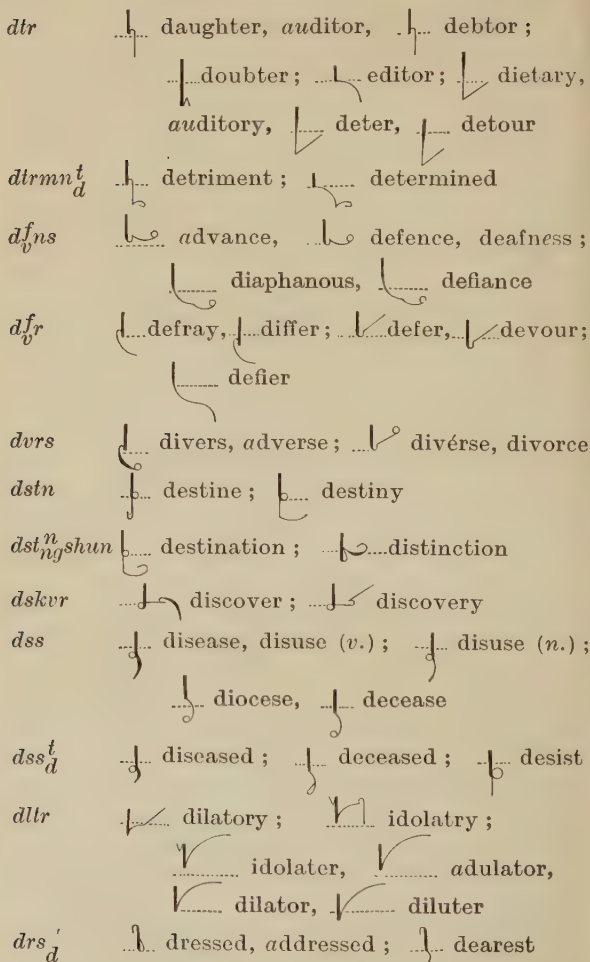 dtr daughter, auditor, debtor ;
doubter ; editor ; dietary,
auditory, deter, detour
dtrmn t d detriment ; determined
d f v ns advance, defence, deafness ;
diaphanous, defiance
d f v r defray, differ ; defer, devour ;
defier
dvrs divers, adverse ; divérse, divorce
dstn destine ; destiny
dst n ng shun destination ; distinction
dskvr discover ; discovery
dss disease, disuse (v.) ; disuse (n.) ;
diocese, decease
dss t d diseased ; deceased ; desist
dltr dilatory ; idolatry ;
idolater, adulator,
dilator, diluter
drs ' d dressed, addressed ; dearest